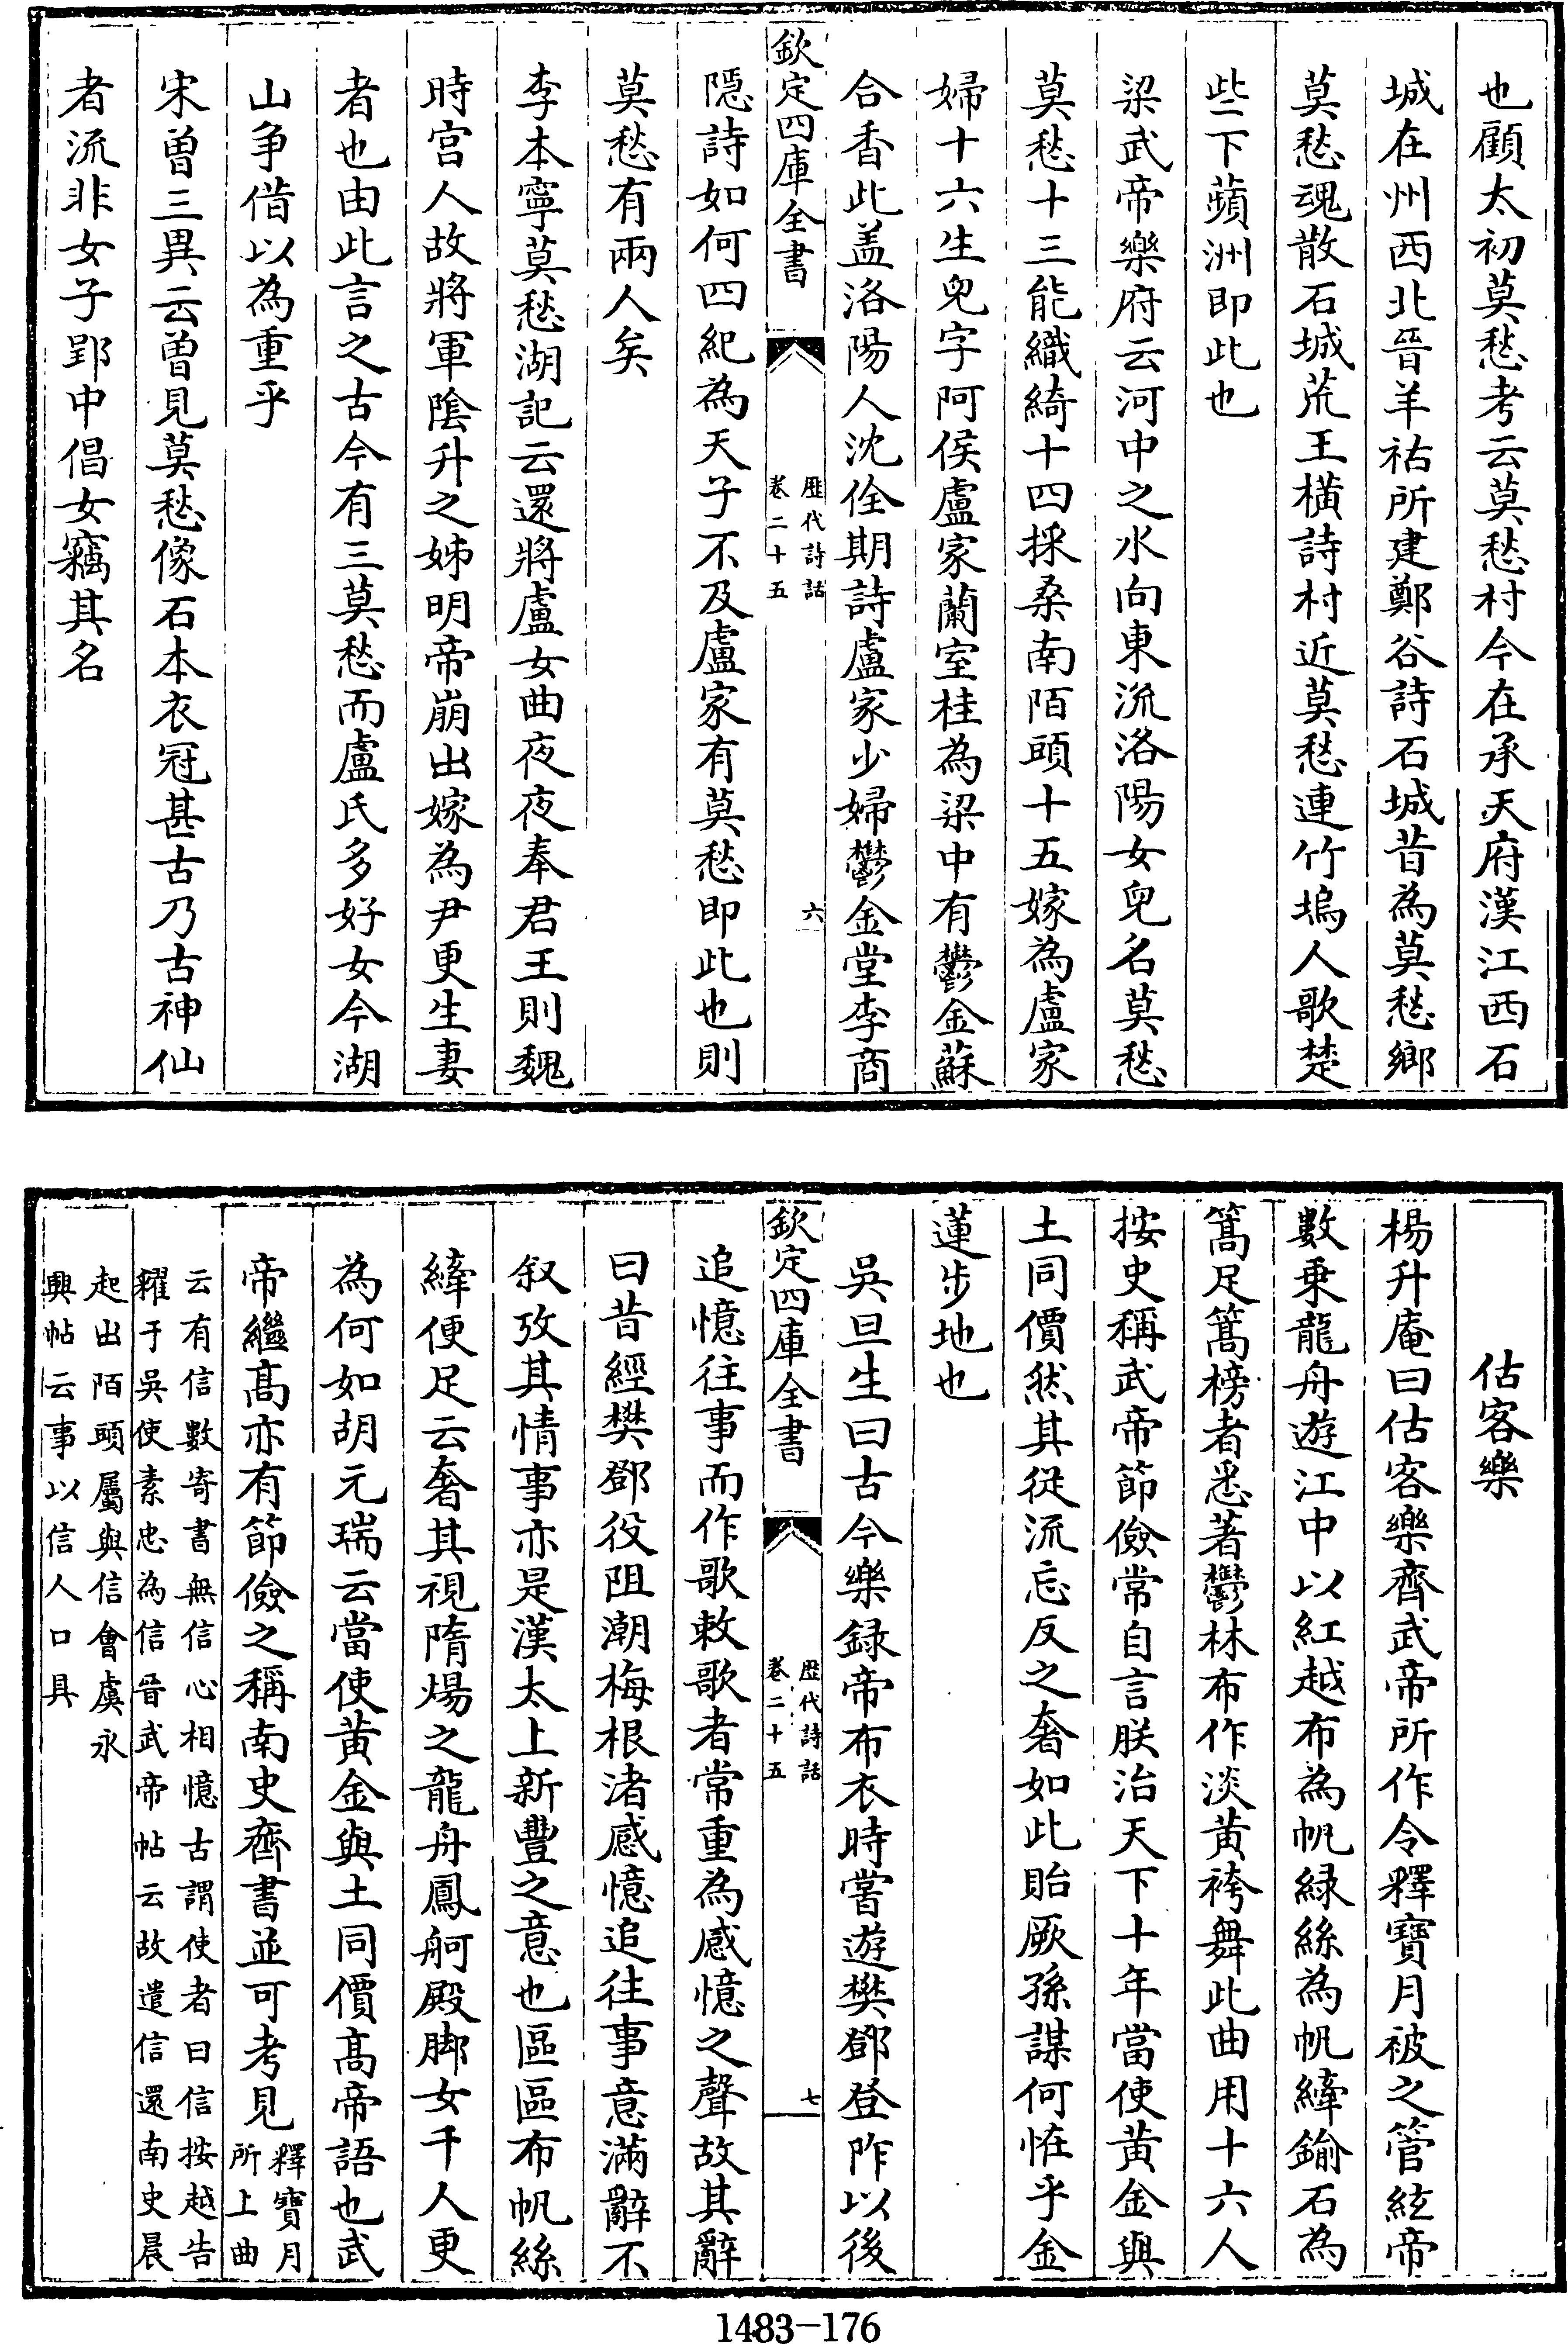 也顧太初莫愁考云莫愁村今在承天府漢江西石
城在州西北晉羊祜所建鄭谷詩石城昔為莫愁鄉
莫愁魂散石城荒王橫詩村近莫愁連竹塢人歌楚
些下蘋洲即此也
梁武帝樂府云河中之水向東流洛陽女兒名莫愁
莫愁十三能織綺十四採桑南陌頭十五嫁為盧家
婦十六生兒字阿侯盧家蘭室桂為梁中有鬱金蘇
合香此盖洛陽人沈佺期詩盧家少婦鬱金堂李商
欽定四庫全書
歴代詩話
卷二十五
六
隱詩如何四紀為天子不及盧家有莫愁即此也則
莫愁有兩人矣
李本寧莫愁湖記云還將盧女曲夜夜奉君王則魏
時宮人故將軍陰升之姊明帝崩出嫁為尹更生妻
者也由此言之古今有三莫愁而盧氏多好女今湖
山爭借以為重乎
宋曾三異云曾見莫愁像石本衣冠甚古乃古神仙
者流非女子郢中倡女竊其名
估客樂
楊升庵曰估客樂齊武帝所作令釋寶月被之管絃帝
數乗龍舟遊江中以紅越布為帆緑絲為帆縴鍮石為
篙足篙榜者悉著鬱林布作淡黄袴舞此曲用十六人
按史稱武帝節儉常自言朕治天下十年當使黃金與
土同價然其從流忘反之奢如此貽厥孫謀何恠乎金
蓮步地也
吳旦生曰古今樂録帝布衣時嘗遊樊鄧登阼以後
欽定四庫全書
歴代詩話
卷二十五
七
追憶往事而作歌敕歌者常重為感憶之聲故其辭
曰昔經樊鄧役阻潮梅根渚感憶追往事意滿辭不
叙攷其情事亦是漢太上新豐之意也區區布帆絲
縴便足云奢其視隋煬之龍舟鳳舸殿脚女千人更
為何如胡元瑞云當使黃金與土同價髙帝語也武
帝繼髙亦有節儉之稱南史齊書並可考見釋寶月
所上曲
云有信數寄書無信心相憶古謂使者曰信按越告
糴于吳使素忠為信晉武帝帖云故遣信還南史晨
起出陌頭屬與信會虞永
興帖云事以信人口具
1483-176